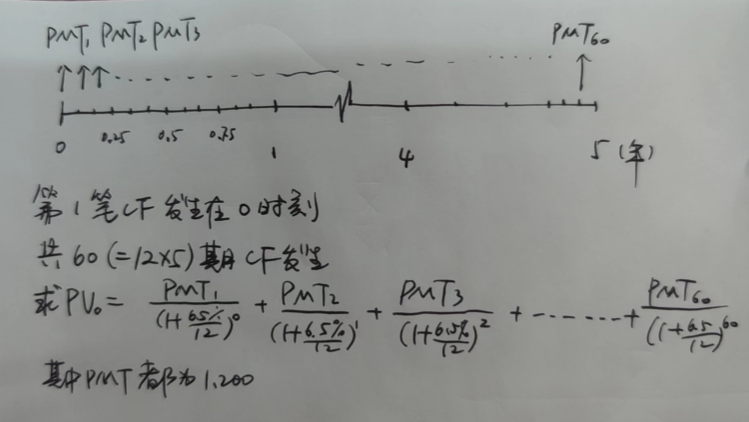 PMT₁ PMT₂ PMT₃ PMT₆₀
0 0.25 0.5 0.75 1 4 5 (年)
第1笔CF发生在0时刻
共60(=12×5)期CF发生
求PV₀= PMT₁/(1+6.5%/12)⁰ + PMT₂/(1+6.5%/12)¹ + PMT₃/(1+6.5%/12)² + ------- + PMT₆₀/((1+6.5/12)⁶⁰
其中PMT都为1,200